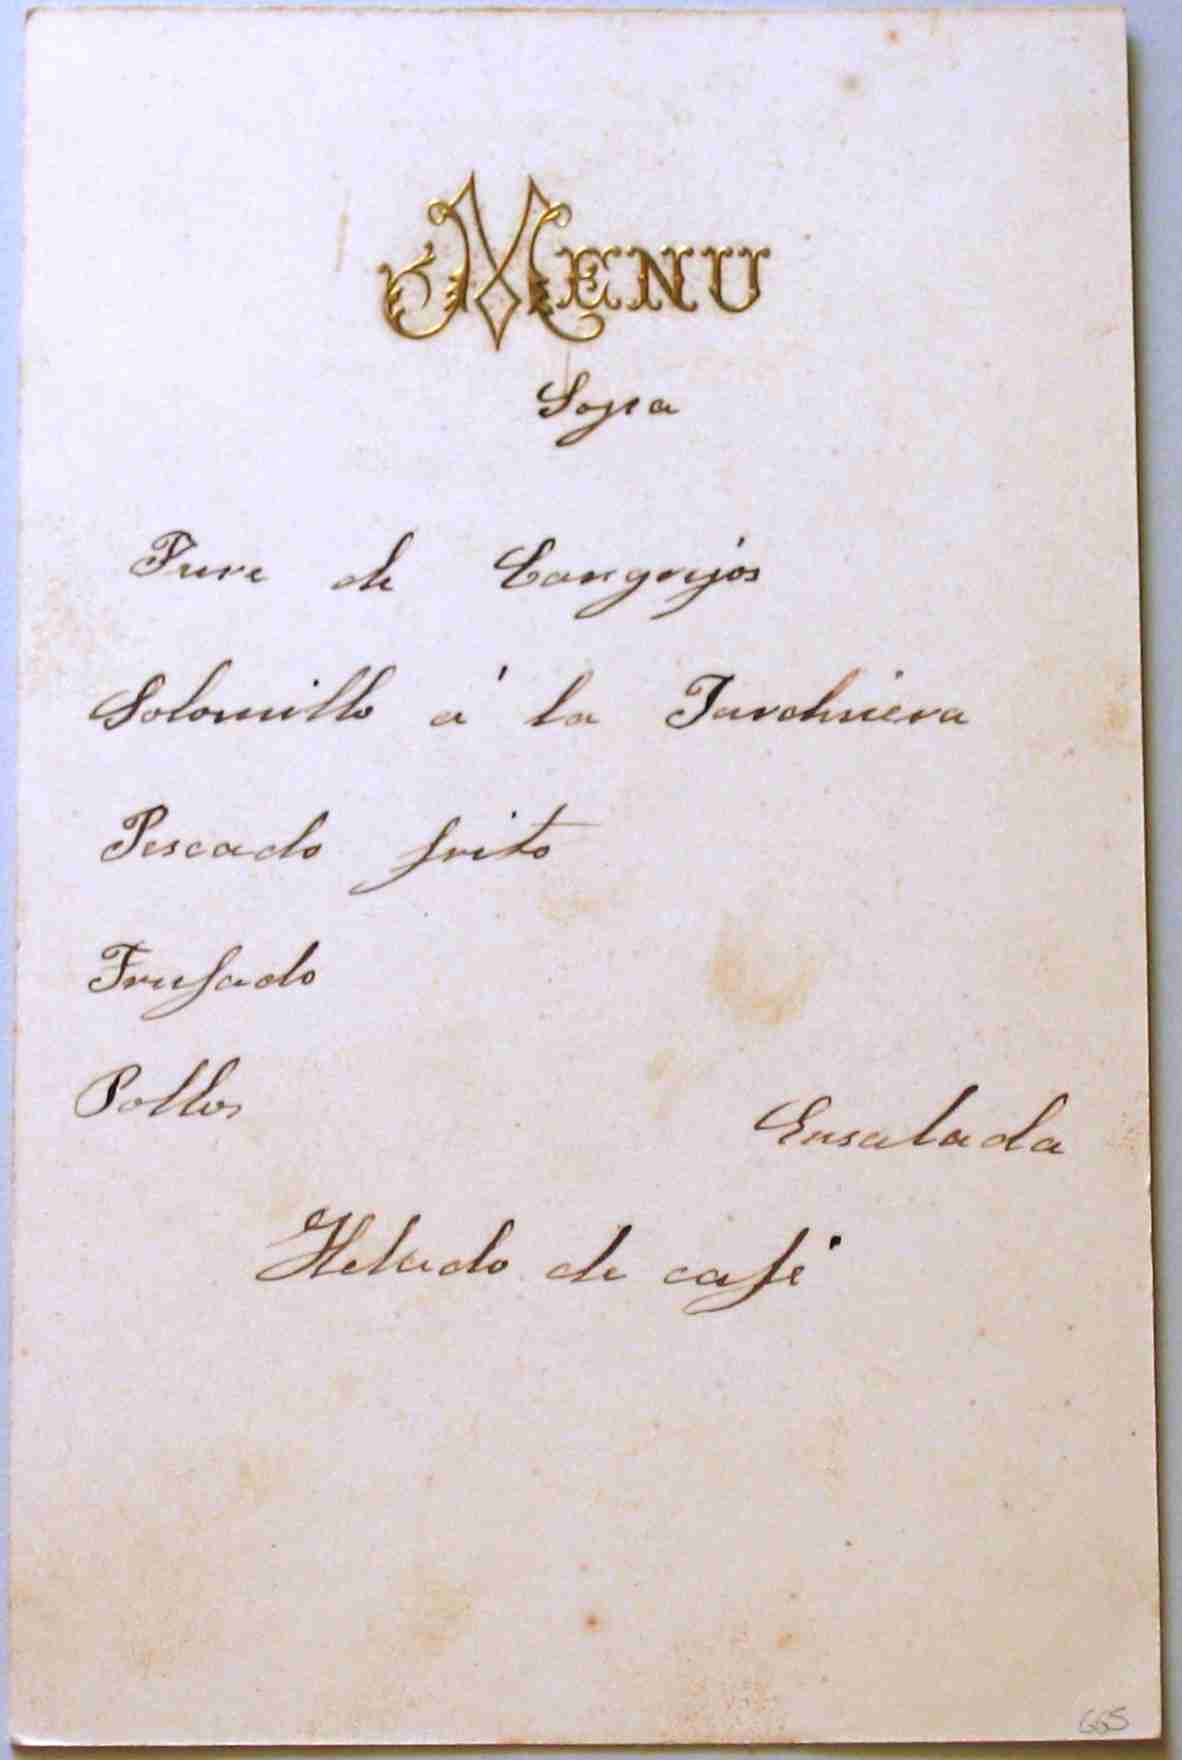 MENU
Sopa
Pure de Cangrejos
Solomillo á la Jardiniera
Pescado frito
Trufado
Pollos
Ensalada
Helado de café
665